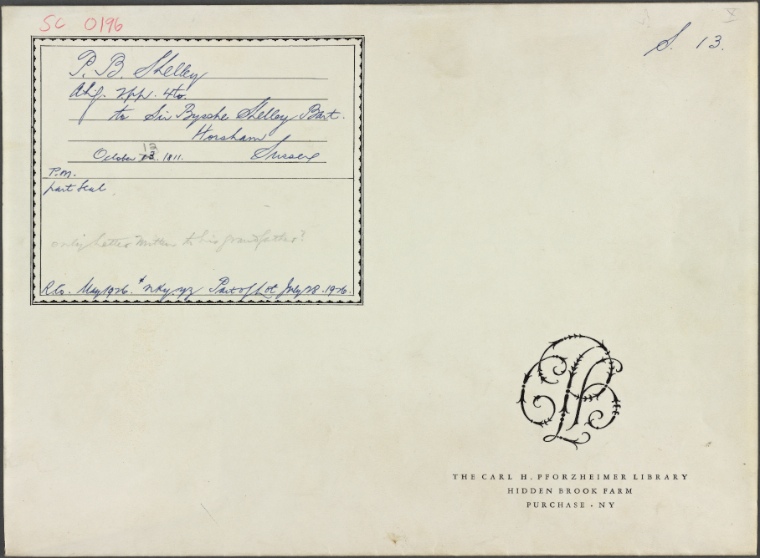 SC 0196
S. 13.
P. B. Shelley
2pp. 4to.
to Sir Bysshe Shelley Bart.
Horsham
Sussex
October 1811.
P.M.
part Seal
only letter written to his grandfather?
May 1926. Part of Lot July 28. 1926
THE CARL H. PFORZHEIMER LIBRARY
HIDDEN BROOK FARM
PURCHASE · NY